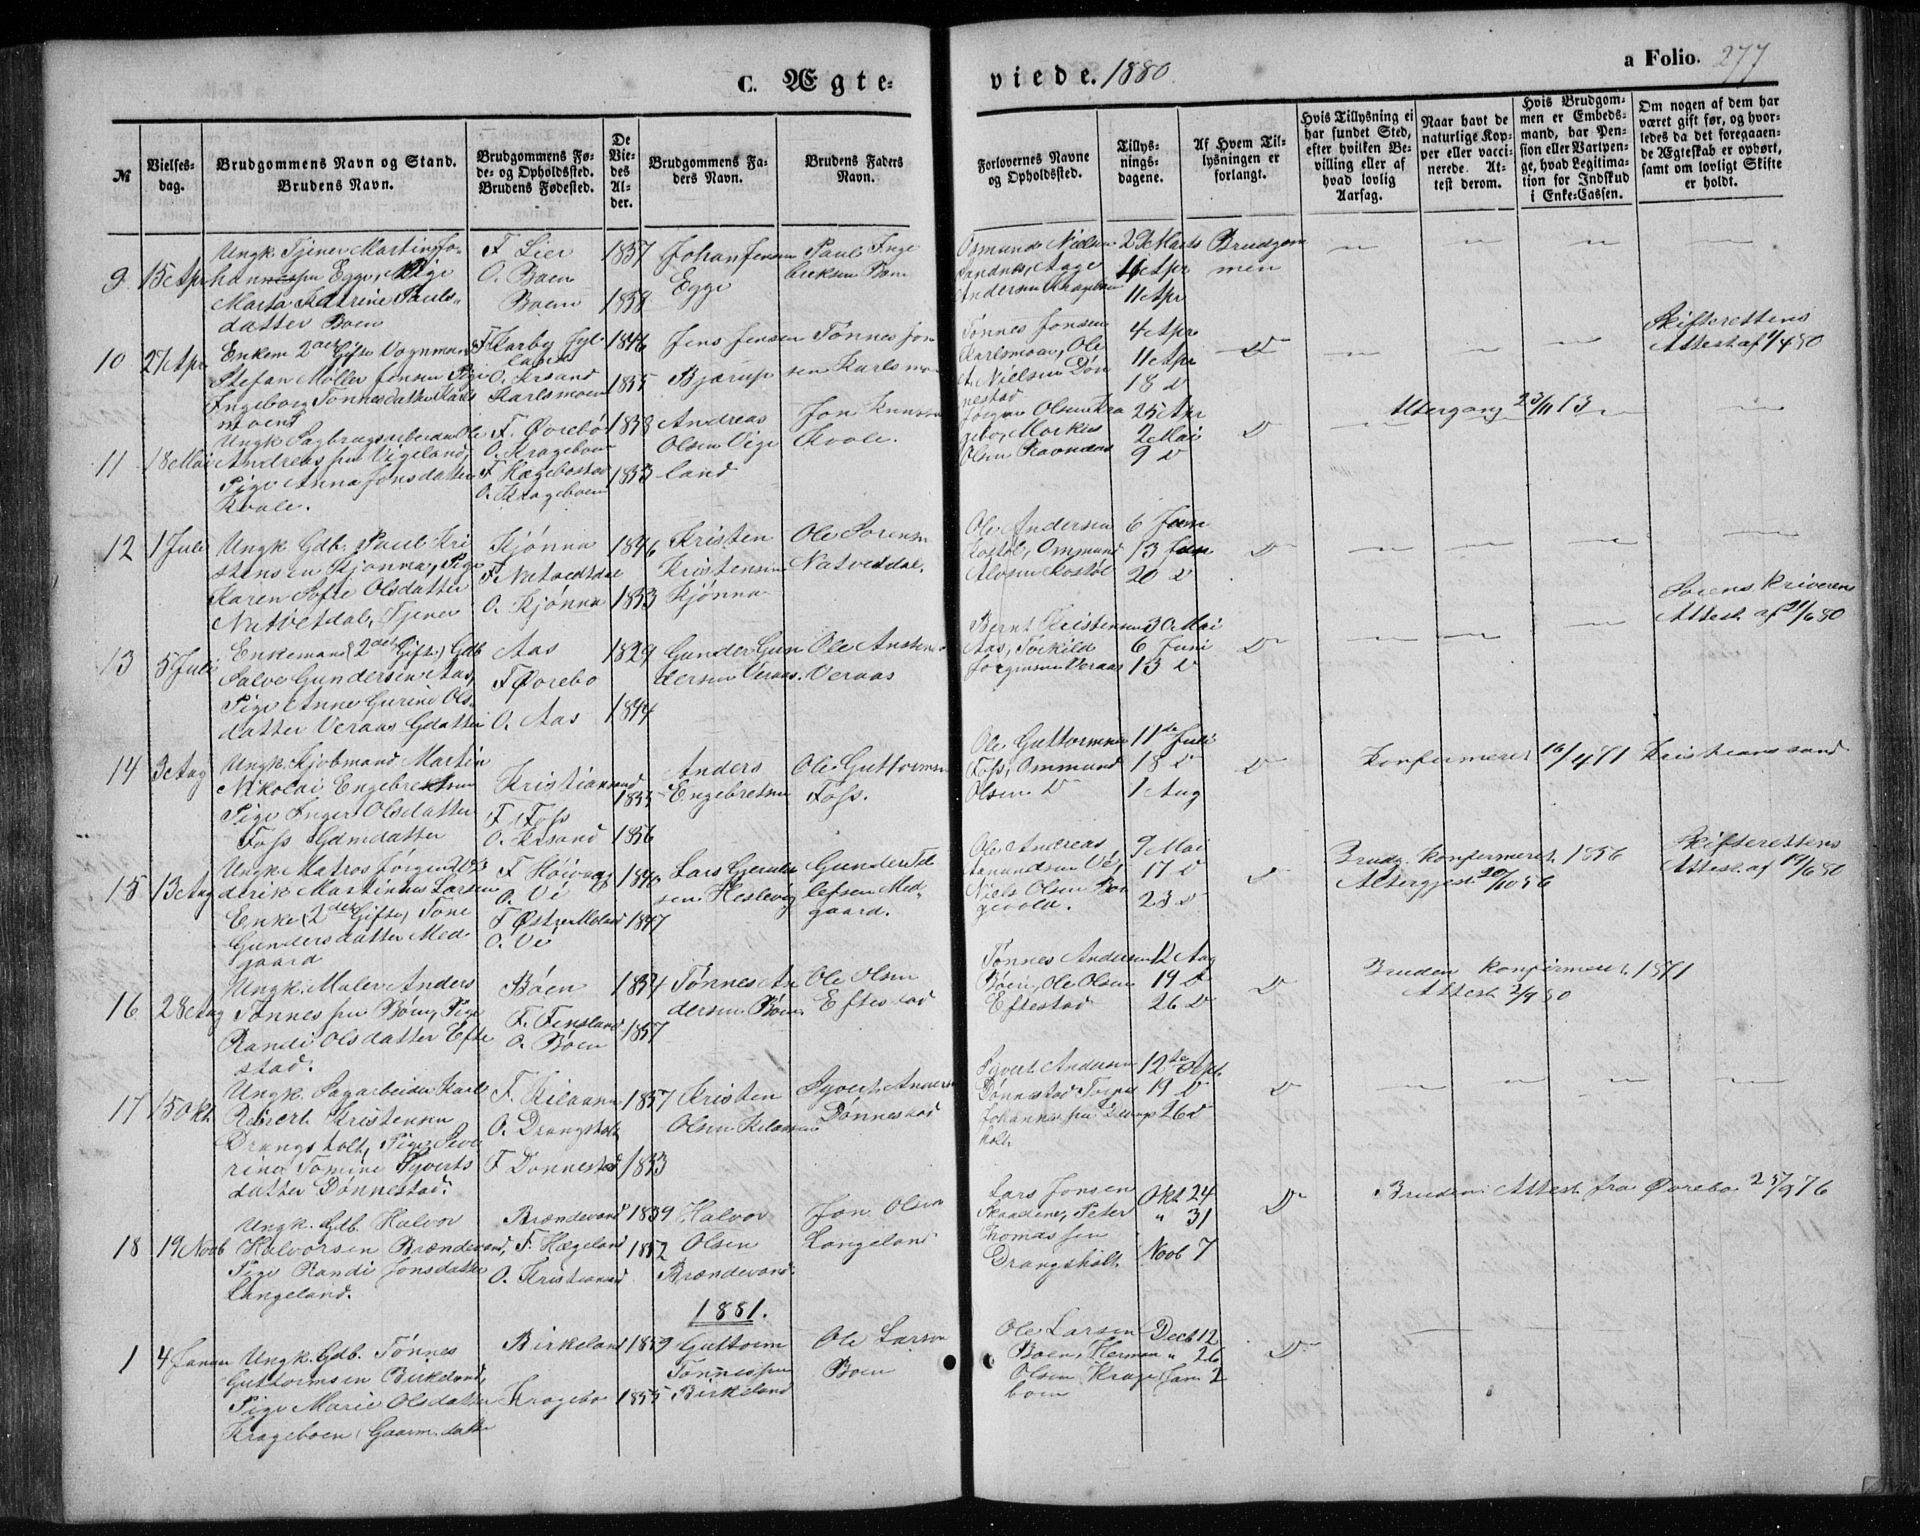 C. Ægte-
viede. 1880.
a Folio. 277
№
Vielses-
dag.
Brudgommens Navn og Stand.
Brudens Navn.
Brudgommens Fø-
de- og Opholdssted.
Brudens Fødested.
De
Vie-
des
Al-
der.
Brudgommens Fa-
ders Navn.
Brudens Faders
Navn.
Forlovernes Navne
og Opholdssted.
Tillys-
nings-
dagene.
Af Hvem Til-
lysningen er
forlangt.
Hvis Tillysning ei
har fundet Sted,
efter hvilken Be-
villing eller af
hvad lovlig
Aarsag.
Naar havt de
naturlige Kop-
per eller vacci-
nerede. At-
test derom.
Hvis Brudgom-
men er Embeds-
mand, har Pen-
sion eller Vartpen-
ge, hvad Legitima-
tion for Indskud
i Enke-Cassen.
Om nogen af dem har
været gift før, og hvor-
ledes da det foregaaen-
de Ægteskab er ophørt,
samt om lovligt Skifte
er holdt.
9
15 Apr
Ungk. Tjener Martin Jo-
hannessen Egge, Pige
Marta Katrine Pauls-
datter Boen
F. Lier
O. Boen
Boen
1857
1858
Johan Jensen
Egge
Paul Inge
briksen Boen
Osmund Nielsen
Andersen Krageboen
4 Apr
11 Apr
Brudgom
men
10
27 Apr
Enkem 2det Gifte Vognmand
Stefan Møller Jensen Pige
Ingeborg Tønnesdatter Karls
moen
F. Karby Jyl-
land
O. Krsand
Karlsmoen
1846
1855
Jens Jensen
Bjærup
Tønnes Jon
sen Karlsmoen
Tønnes Jonsen
Karlsmoen, Ole
Nielsen Døn
nestad
4 Apr
11 Apr
18 D
D
Skifterettens
Attest af
11
18 Mai
Ungk. Sagbrugsarbeider Ole
Andreassen Vigeland,
Pige Anna Jonsdatter
Kvale.
F. Øvrebø
O. Krageboen
F. Hægebostad
O. Krageboen
1858
1853
Andreas
Olsen Vige
land
Kvale.
Jørgen Olsen Kra
gebo, Markus
Olsen Ravnaas
25 Apr
2 Mai
9 D
D
Altergang 23/11 73
12
1 Juli
Ungk Gdb. Paul Kri
stensen Kjønna, Pige
Karen Sofie Olsdatter
Natvetdal, Tjener
Kjønna
F. Natvedtdal
O. Kjønna
1846
1853
Kristen
Kristensen
Kjønna
Ole Sørensen
Natveddal.
Ole Andersen
Kostøl, Ommund
Alvsen Kostøl
6 Juni
13 Juni
20 D
D
13
5 Juli
Enkemand (2det Gifte) Gdb
Salve Gundersen Aas,
Pige Anne Gurine Ols-
datter Veraas Gdatter
Aas
F Øvrebo
O. Aas
1829
1844
Gunder Gun
dersen Veraas.
Ole Anstens
Veraas
Bernt Kristensen
Aas, Torkild
Jørginsen Veraas
30 Mai
6 Juni
13 D
D
Sorenskriverens
Attest af 21/6 80
14
3 Aug
Ungk. Kjøbmand Martin
Nikolai Engebretsen
Pige Inger Olsdatter
Foss Gdmdatter
Kristiansand
F. Foss
O. Krsand
1855
1856
Anders
Engebretsen
Ole Guttormsen
Foss.
Ole Guttormsen
Foss, Ommund
Olsen D
11te Juli
18 D
1 Aug
D
Konfirmeret 16/4 71 Kristianssand
15
13 Aug
Ungk Matros Jørgen
drik Martinius Larsen
Enke (2det Gifte) Tone
Gundersdatter Med
gaard
F Høivaag
O. Vi
F Østre Moland
O. Vi
1840
1847
Lars Gjeruld
sen Heslevig
Gunder Te
lefsen Med-
gaard.
Ole Andreas
Asmundsen Vi,
Niels Olsen Bor
gevold.
9 Mai
17 D
23 D
D
Brudg. Konfirmeret 1856
Altergjest 20/10 56
Skifterettens
Attest af 19/6 80
16
28 Aug
Ungk. Maler Anders
Tønnessen Bøen, Pige
Randi Olsdatter Efte
stad.
Bøen
F. Finsland
O. Bøen
1854
1857
Tønnes An
dersen Bøen
Ole Olsen
Eftestad
Tønnes Andersen
Bøen, Ole Olsen
Eftestad
12 Aug
19 D
26 D
D
Bruden Konfirmeret 1871
Attest 2/9 80
17
15 Okt
Ungk. Sagarbeider Karl
Robert Kristensen
Drangsholt, Pige Seve
rine Tomine Syverts
datter Dønnestad.
F. Kilaann
O. Drangsholt
F Donnestad
1857
1853
Kristen
Olsen Kilaann
Syvert Anders
Dønnestad
Syvert Andersen
Dønnestad
Johannessen Drangs
holt.
12te Sept.
19 D
26 D
D
18
19 Novb
Ungk. Gdb. Halvor
Halvorsen Brændevand,
Pige Randi Jonsdatter
Langeland.
Brændevand
F. Hægeland
O. Kristiansand
1859
1852
Halvor
Olsen
Brændevand.
Jon Olsen
Langeland
Lars Jonsen
Skaadene, Peter
Thomassen
Drangsholt
Okt 24
" 31
Novb 7
D
Brudens Attest fra Øvrebø 25/9 76
1881.
1
4 Januar
Ungk. Gdb. Tønnes
Guttormsen Birkeland,
Pige Marie Olsdatter
Krageboen Gaarm.datter
Birkeland
Kragebo
1859
1855
Guttorm
Tønnessen
Birkeland
Ole Larsen
Boen
Ole Larsen
Boen, Herman
Olsen Krage
boen
Decb 12
" 26
Jan 2
D